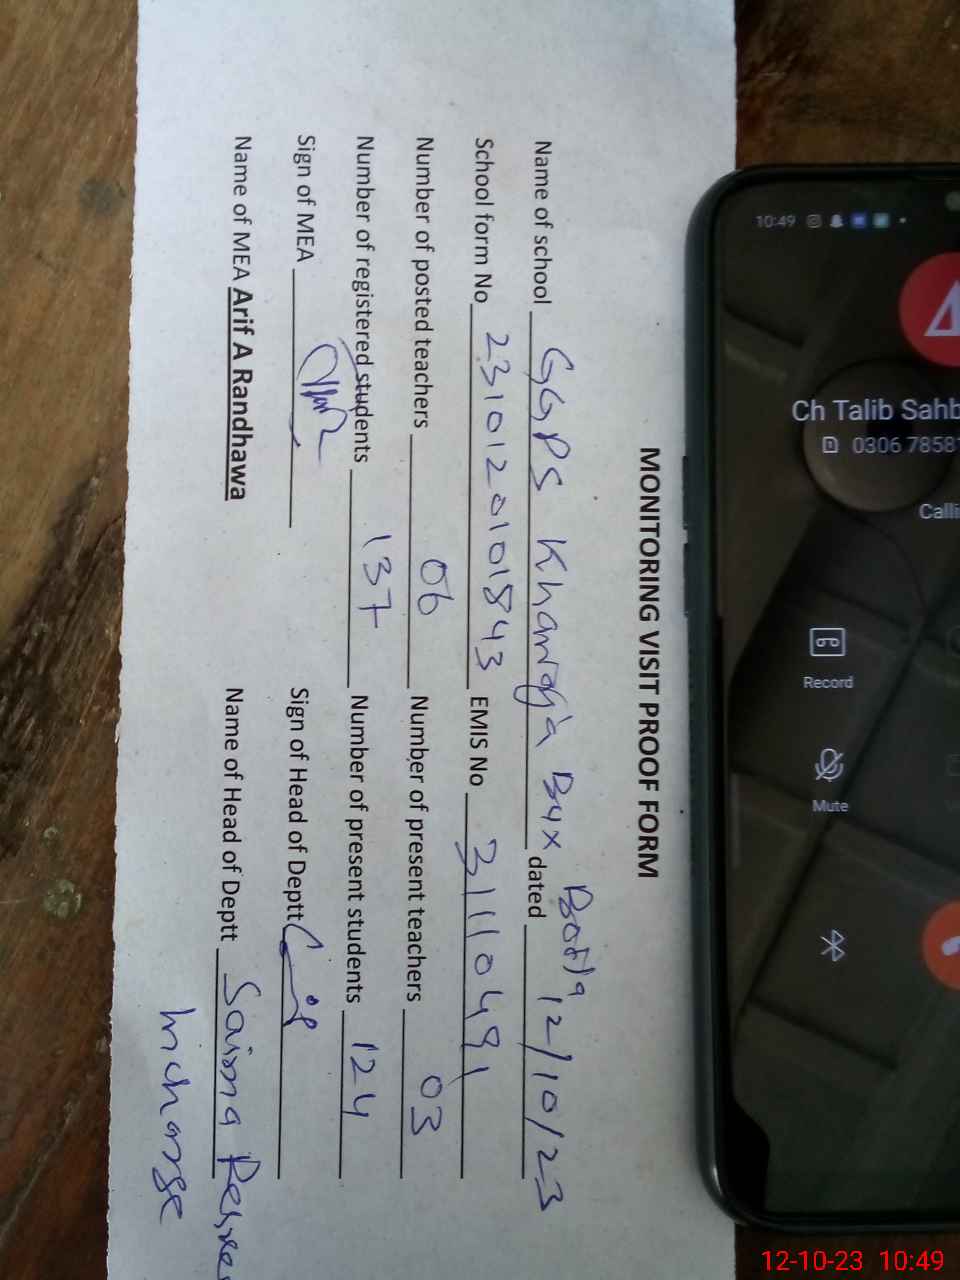 MONITORING VISIT PROOF FORM
Name of school GGPS Khawaja Bux Botla dated 12/10/23
School form No 2310120101843 EMIS No 31110491
Number of posted teachers 06 Number of present teachers 03
Number of registered students 137 Number of present students 124
Sign of MEA Sign of Head of Deptt
Name of MEA Arif A Randhawa Name of Head of Deptt Saima
Incharge
10:49
Ch Talib Sahb
0306 7858
Calli
Record
Mute
12-10-23 10:49